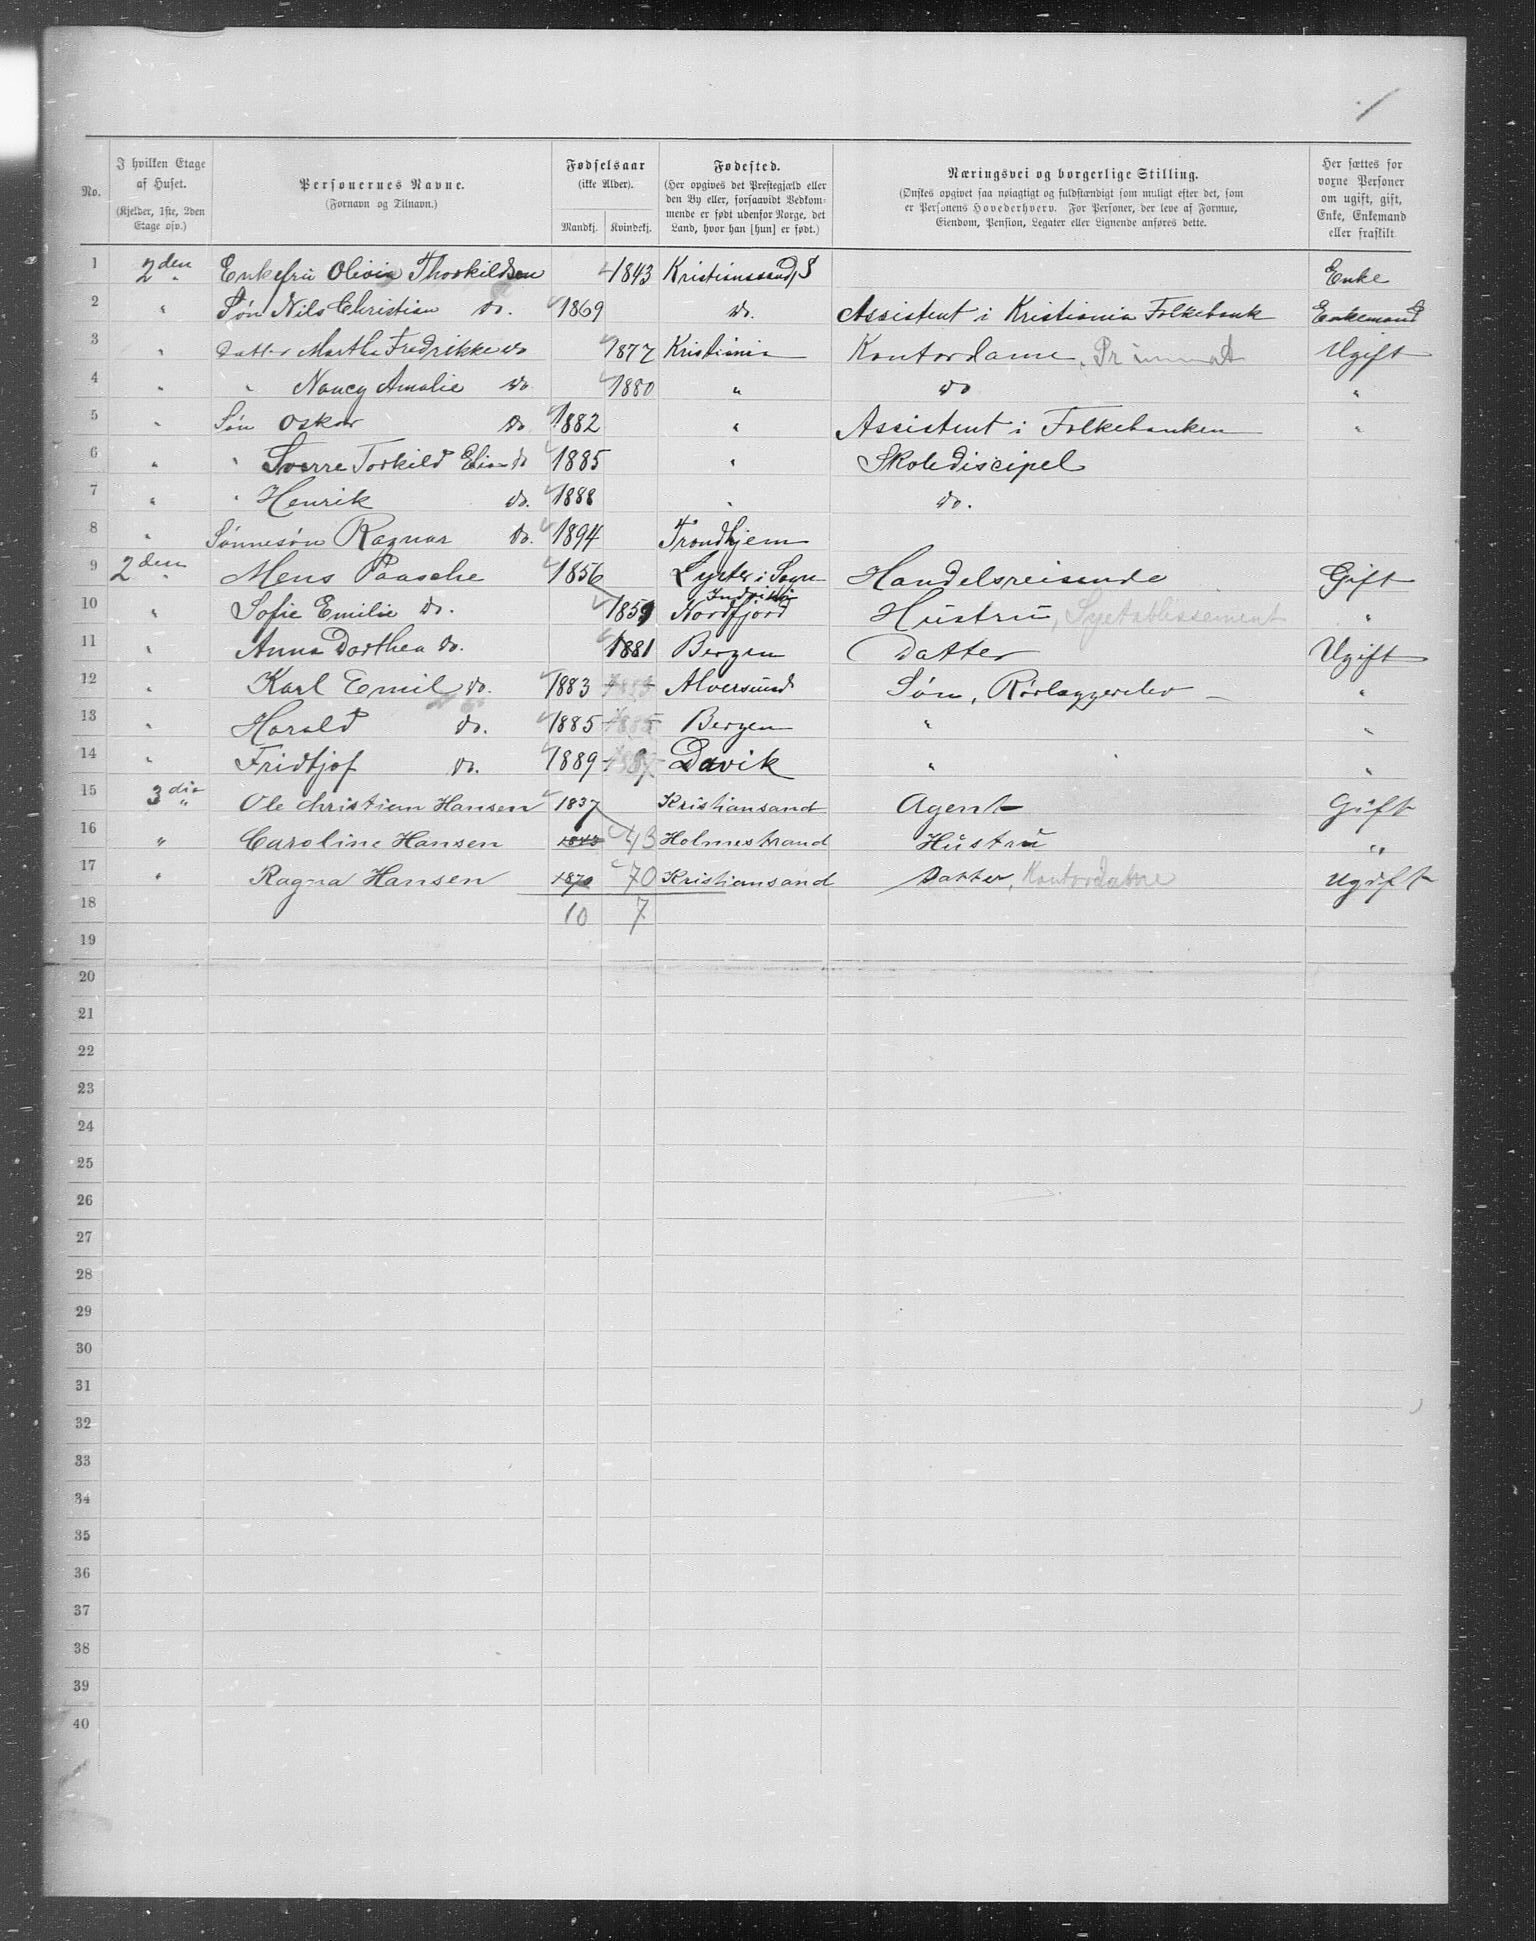 No.
I hvilken Etage af Huset.
(Kjelder, 1ste, 2den Etage osv.)
Personernes Navne.
(Fornavn og Tilnavn.)
Fødselsaar
(ikke Alder).
Mandkj. Kvindekj.
Fødested.
(Her opgives det Prestegjæld eller
den By eller, forsaavidt Vedkom-
mende er født udenfor Norge, det
Land, hvor han [hun] er født.)
Næringsvei og borgerlige Stilling.
(Ønskes opgivet saa nøiagtigt og fuldstændigt som muligt efter det, som
er Personens Hovederhverv. For Personer, der leve af Formue,
Eiendom, Pension, Legater eller Lignende anføres dette.
Her sættes for
voxne Personer
om ugift, gift,
Enke, Enkemand
eller fraskilt.
1 2den Enkefru Olivia Thorkildsen 1843 Kristianssand S Enke
2 " Søn Nils Christian Do. 1869 Do. Assistent i Kristiania Folkebank Enkemand
3 " Datter Martha Fredrikke Do 1877 Kristiania Kontordame, Ugift
4 " " Nancy Amalie Do 1880 " Do "
5 " Søn Oskar Do 1882 " Assistent i Folkebanken "
6 " " Sverre Torkild Elias Do 1885 " Skolediscipel
7 " " Henrik Do. 1888 " Do.
8 " Sønnesøn Ragnar Do. 1894 Trondhjem
9 2den Mens Paasche 1856 Lyster i Sogn Handelsreisende Gift
10 " Sofie Emilie Do. 1859 Indviken Nordfjord Hustru, Syetablissement "
11 " Anna Dorthea Do. 1881 Bergen Datter Ugift
12 " Karl Emil Do. 1883 1883 Alversund Søn, Rørlæggerelev "
13 " Harald Do. 1885 1885 Bergen " "
14 " Fridtjof Do. 1889 Davik " "
15 3die " Ole Christian Hansen 1837 Kristiansand Agent Gift
16 " Caroline Hansen 1843 43 Holmestrand Hustru "
17 " Ragna Hansen 1870 70 Kristiansand Datter, Kontordame Ugift
18 10 7
19
20
21
22
23
24
25
26
27
28
29
30
31
32
33
34
35
36
37
38
39
40